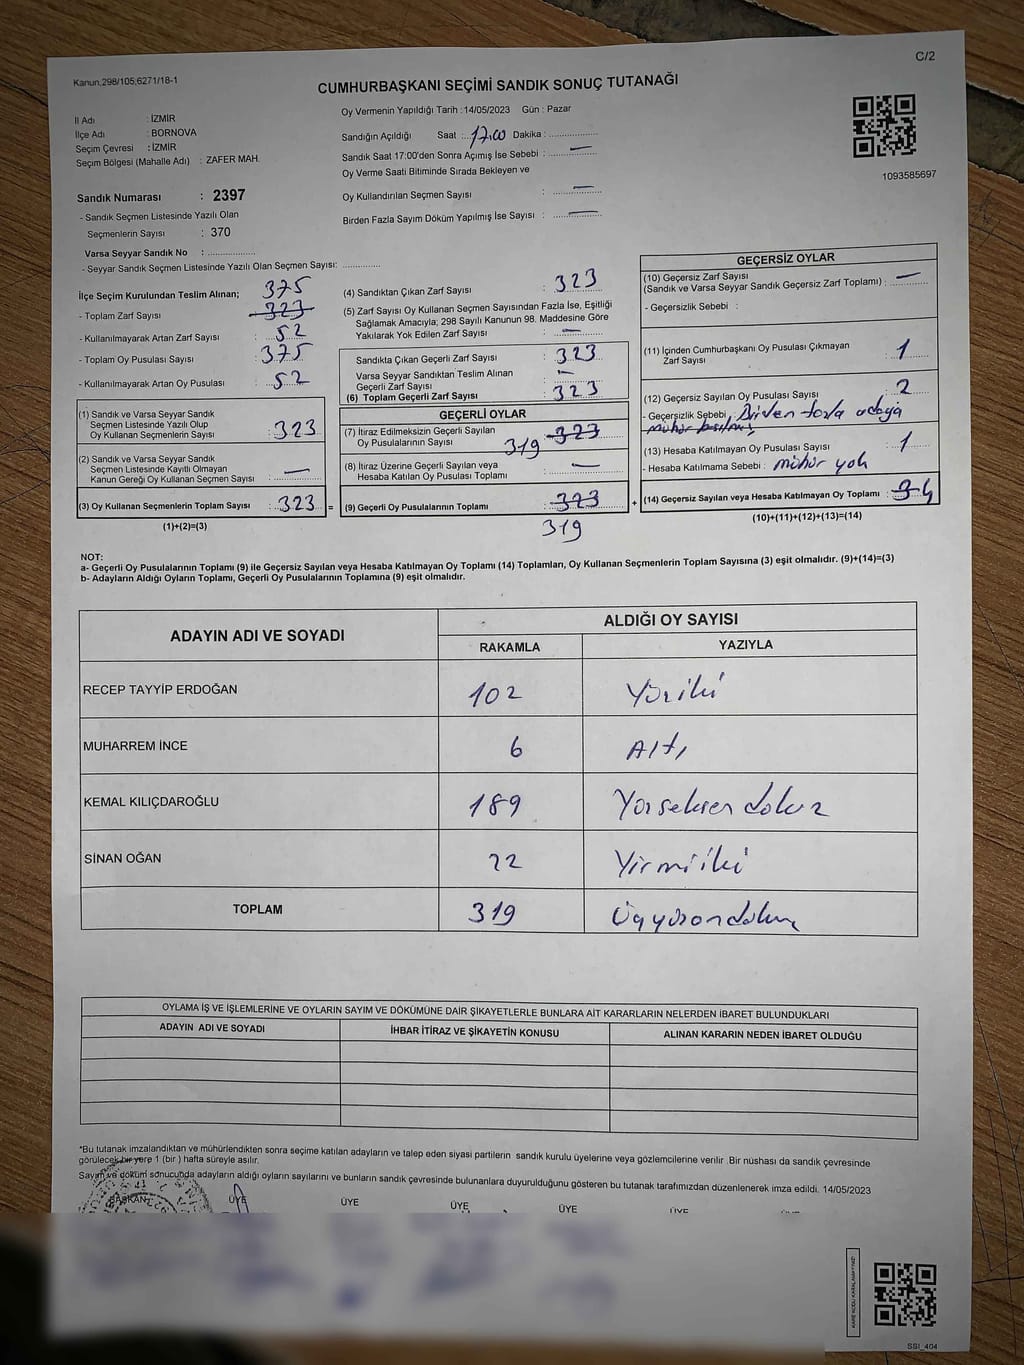 C/2
Kanun.298/105,6271/18-1
CUMHURBAŞKANI SEÇİMİ SANDIK SONUÇ TUTANAĞI
İl Adı : İZMİR
İlçe Adı : BORNOVA
Seçim Çevresi : İZMİR
Seçim Bölgesi (Mahalle Adı) : ZAFER MAH.
Sandık Numarası : 2397
- Sandık Seçmen Listesinde Yazılı Olan
Seçmenlerin Sayısı : 370
Varsa Seyyar Sandık No : ...............
- Seyyar Sandık Seçmen Listesinde Yazılı Olan Seçmen Sayısı: ............
Oy Vermenin Yapıldığı Tarih :14/05/2023 Gün : Pazar
Sandığın Açıldığı Saat : 17.00 Dakika : ...............
Sandık Saat 17:00'den Sonra Açımış İse Sebebi : —
Oy Verme Saati Bitiminde Sırada Bekleyen ve
Oy Kullandırılan Seçmen Sayısı : —
Birden Fazla Sayım Döküm Yapılmış İse Sayısı : —
1093585697
İlçe Seçim Kurulundan Teslim Alınan; 375
- Toplam Zarf Sayısı 323
- Kullanılmayarak Artan Zarf Sayısı : 52
- Toplam Oy Pusulası Sayısı : 375
- Kullanılmayarak Artan Oy Pusulası : 52
(1) Sandık ve Varsa Seyyar Sandık
Seçmen Listesinde Yazılı Olup
Oy Kullanan Seçmenlerin Sayısı : 323
(2) Sandık ve Varsa Seyyar Sandık
Seçmen Listesinde Kayıtlı Olmayan
Kanun Gereği Oy Kullanan Seçmen Sayısı : —
(3) Oy Kullanan Seçmenlerin Toplam Sayısı : 323 =
(1)+(2)=(3)
(4) Sandıktan Çıkan Zarf Sayısı : 323
(5) Zarf Sayısı Oy Kullanan Seçmen Sayısından Fazla İse, Eşitliği
Sağlamak Amacıyla; 298 Sayılı Kanunun 98. Maddesine Göre
Yakılarak Yok Edilen Zarf Sayısı : —
Sandıkta Çıkan Geçerli Zarf Sayısı : 323
Varsa Seyyar Sandıktan Teslim Alınan
Geçerli Zarf Sayısı : —
(6) Toplam Geçerli Zarf Sayısı : 323
GEÇERLİ OYLAR
(7) İtiraz Edilmeksizin Geçerli Sayılan
Oy Pusulalarının Sayısı 319 323
(8) İtiraz Üzerine Geçerli Sayılan veya
Hesaba Katılan Oy Pusulası Toplamı : —
(9) Geçerli Oy Pusulalarının Toplamı : 323 +
319
GEÇERSİZ OYLAR
(10) Geçersiz Zarf Sayısı
(Sandık ve Varsa Seyyar Sandık Geçersiz Zarf Toplamı) : —
- Geçersizlik Sebebi :
(11) İçinden Cumhurbaşkanı Oy Pusulası Çıkmayan
Zarf Sayısı : 1
(12) Geçersiz Sayılan Oy Pusulası Sayısı : 2
- Geçersizlik Sebebi : Birden fazla adaya
mühür basılmış
(13) Hesaba Katılmayan Oy Pusulası Sayısı : 1
- Hesaba Katılmama Sebebi : mühür yok
(14) Geçersiz Sayılan veya Hesaba Katılmayan Oy Toplamı : 3 4
(10)+(11)+(12)+(13)=(14)
NOT:
a- Geçerli Oy Pusulalarının Toplamı (9) ile Geçersiz Sayılan veya Hesaba Katılmayan Oy Toplamı (14) Toplamları, Oy Kullanan Seçmenlerin Toplam Sayısına (3) eşit olmalıdır. (9)+(14)=(3)
b- Adayların Aldığı Oyların Toplamı, Geçerli Oy Pusulalarının Toplamına (9) eşit olmalıdır.
ADAYIN ADI VE SOYADI
ALDIĞI OY SAYISI
RAKAMLA YAZIYLA
RECEP TAYYİP ERDOĞAN 102 Yüziki
MUHARREM İNCE 6 Altı
KEMAL KILIÇDAROĞLU 189 Yüzseksendokuz
SİNAN OĞAN 22 Yirmiiki
TOPLAM 319 Üçyüzondokuz
OYLAMA İŞ VE İŞLEMLERİNE VE OYLARIN SAYIM VE DÖKÜMÜNE DAİR ŞİKAYETLERLE BUNLARA AİT KARARLARIN NELERDEN İBARET BULUNDUKLARI
ADAYIN ADI VE SOYADI İHBAR İTİRAZ VE ŞİKAYETİN KONUSU ALINAN KARARIN NEDEN İBARET OLDUĞU
*Bu tutanak imzalandıktan ve mühürlendikten sonra seçime katılan adayların ve talep eden siyasi partilerin sandık kurulu üyelerine veya gözlemcilerine verilir .Bir nüshası da sandık çevresinde
görülecek bir yere 1 (bir ) hafta süreyle asılır.
Sayım ve döküm sonucunda adayların aldığı oyların sayılarını ve bunların sandık çevresinde bulunanlara duyurulduğunu gösteren bu tutanak tarafımızdan düzenlenerek imza edildi. 14/05/2023
BAŞKAN ÜYE ÜYE ÜYE ÜYE ÜYE ÜYE
SSI_404